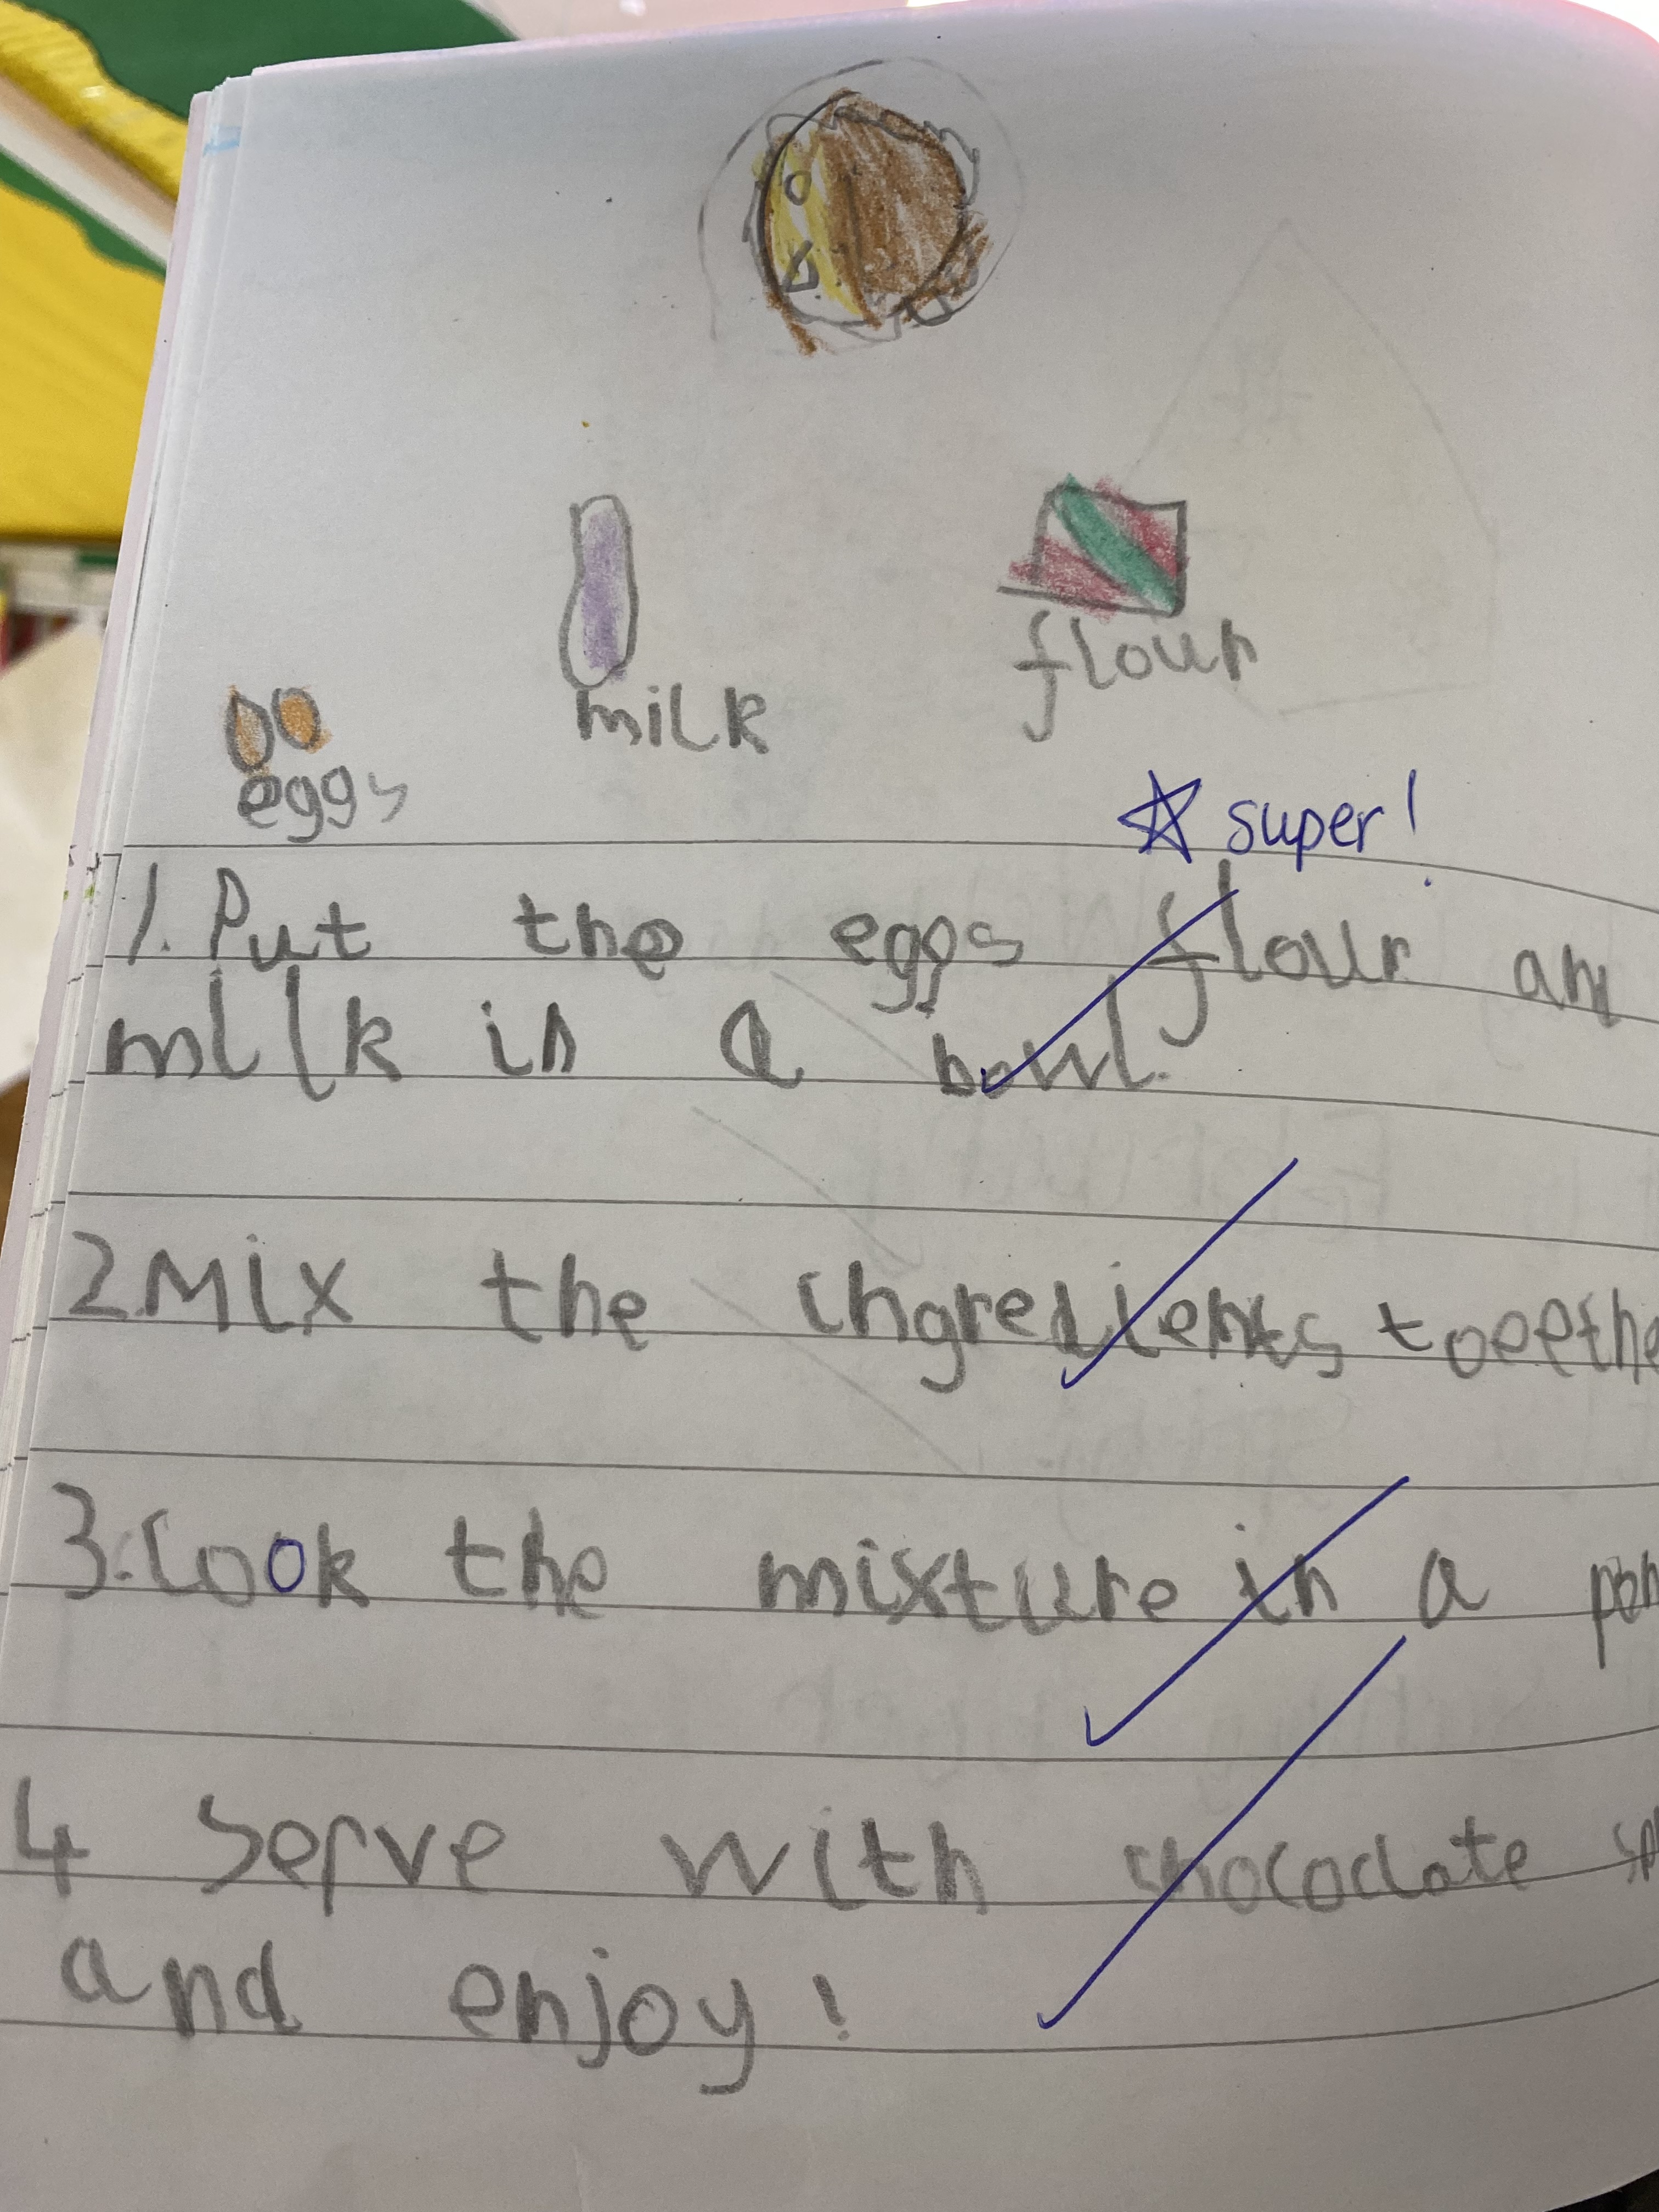 milk
flour
eggs
☆ super!
1. Put the eggs flour an
milk in a bowl.
2. Mix the ingredients toeethe
3. Cook the mixture in a pan
4 Serve with chococlate sp
and enjoy!